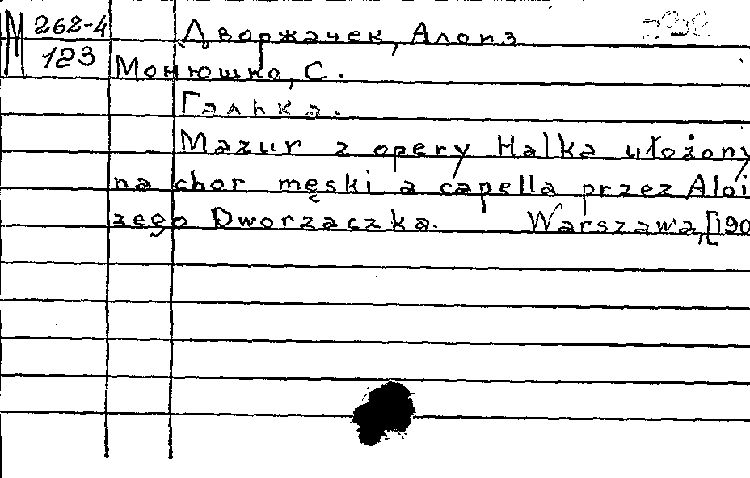 М 262-4 Дворжачек, Алоиз
123 Монюшко, С.
Галька.
Mazur z opery Halka ułożony
na chor męski a capella przez Aloi
zego Dworzaczka. Warszawa, [190